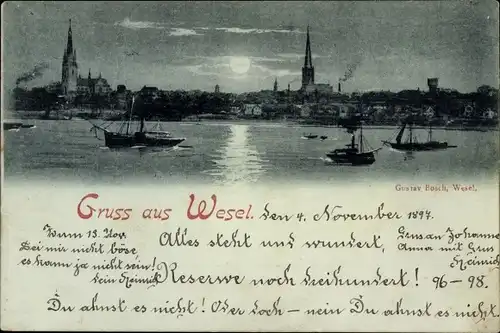 Gustav Bosch, Wesel.
Gruss aus Wesel. den 4. November 1897.
Wenn 13. Nov.
Sei mir nicht böse
es kann ja nicht sein!
Dein Heinrich
Alles steht und wundert,
Reserve noch dreihundert!
Gruss an Johanne
Anna mit Grus
Heinrich
96-98.
Du ahnst es nicht! Oder doch - nein Du ahnst es nicht